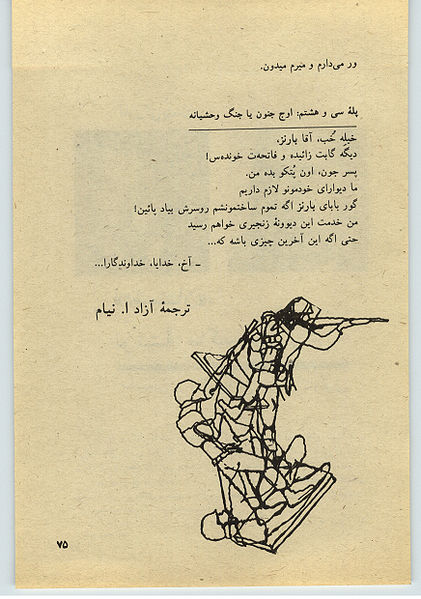 ور می‌دارم و میرم میدون.
پلهٔ سی و هشتم: اوج جنون یا جنگ وحشیانه
خیله خُب، آقا بارنز،
دیگه گابت زائیده و فاتحه‌ت خونده‌س!
پسر جون، اون پُتکو بده من.
ما دیوارای خودمونو لازم داریم
گور بابای بارنز اگه تموم ساختمونشم روسرش بیاد پائین!
من خدمت این دیوونهٔ زنجیری خواهم رسید
حتی اگه این آخرین چیزی باشه که...
ـ آخ، خدایا، خداوندگارا...
ترجمهٔ آزاد ا. نیام
۷۵